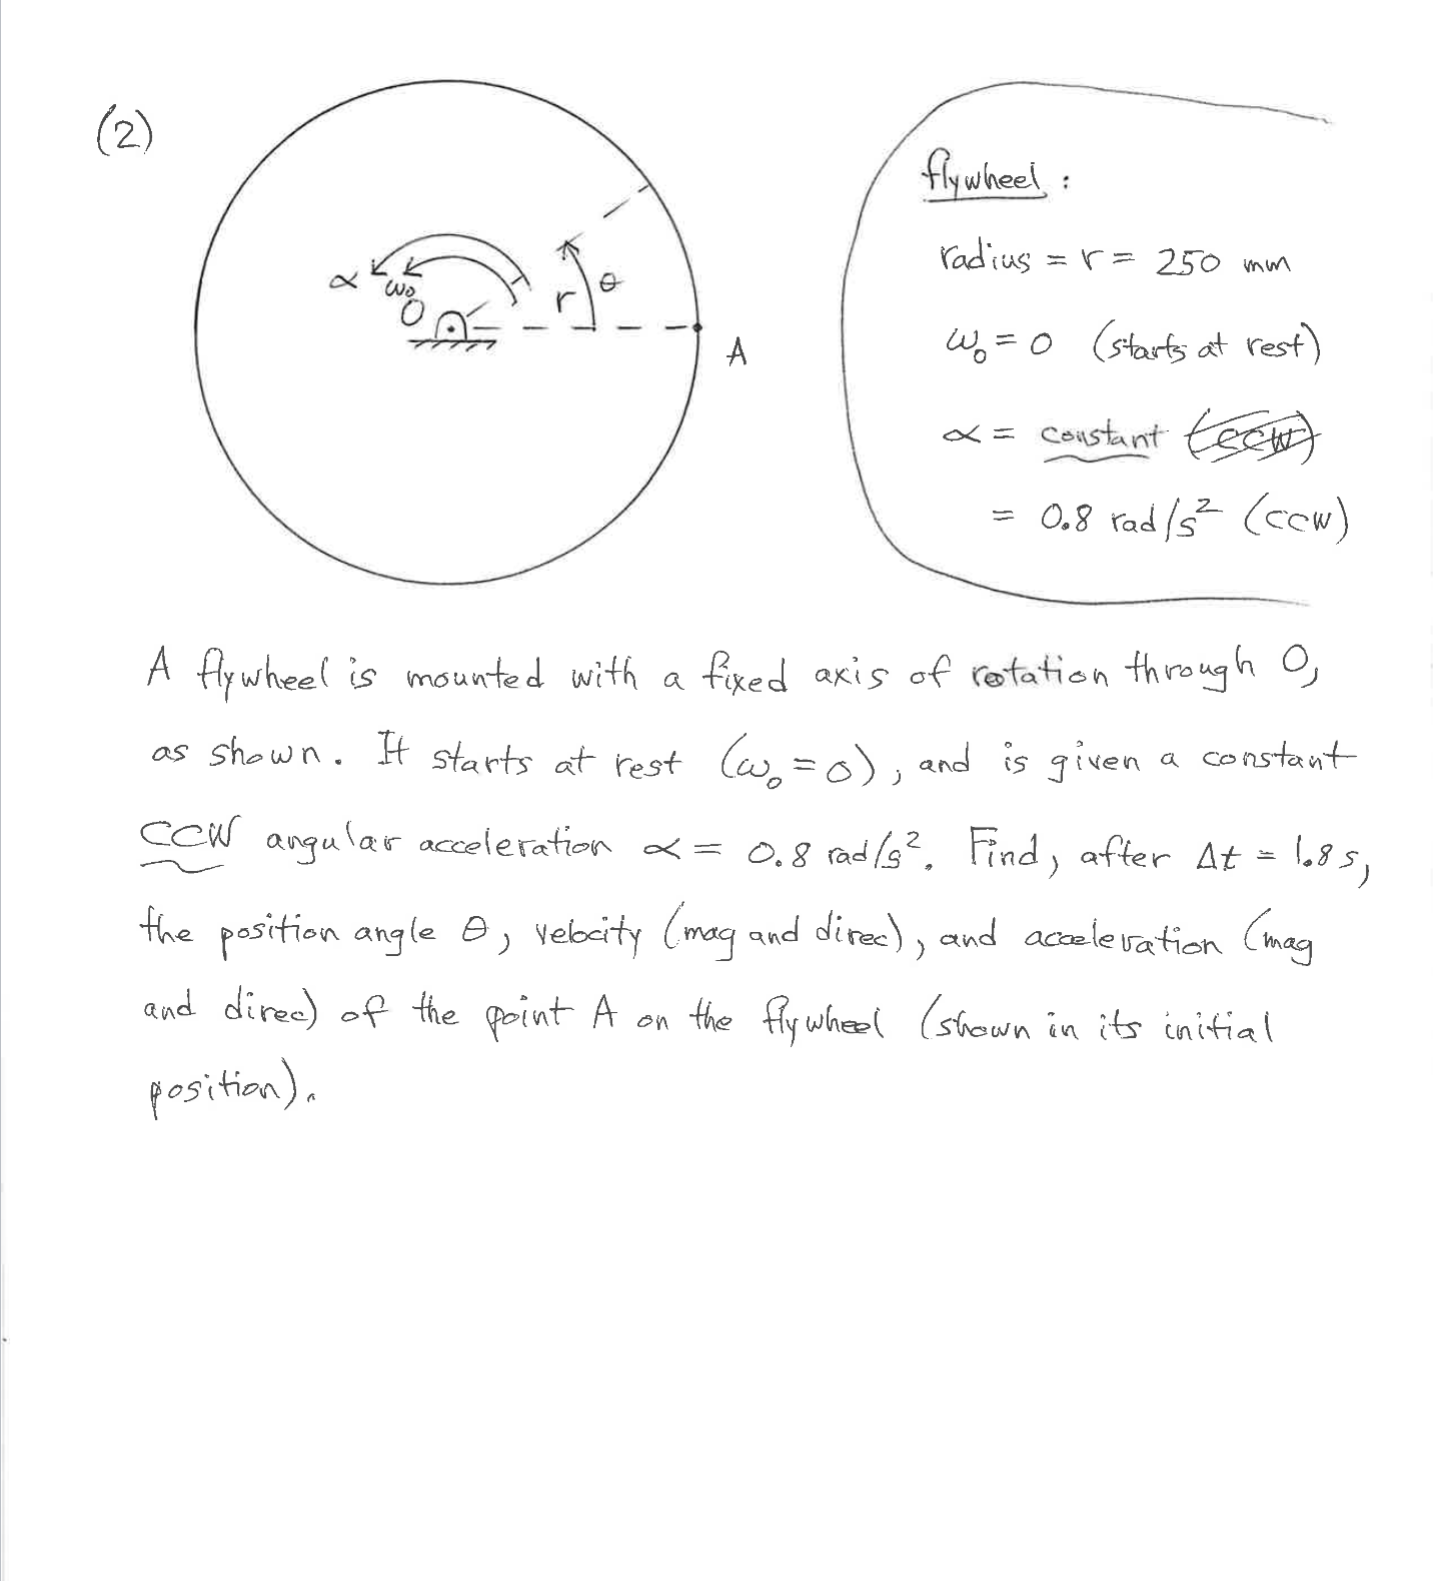 (2)
α
ω₀
O
r
θ
A
flywheel :
radius = r = 250 mm
ω₀ = 0 (starts at rest)
α = constant (ccw)
= 0.8 rad/s² (ccw)
A flywheel is mounted with a fixed axis of rotation through O,
as shown. It starts at rest (ω₀ = 0), and is given a constant
CCW angular acceleration α = 0.8 rad/s². Find, after Δt = 1.8 s,
the position angle θ, velocity (mag and direc), and acceleration (mag
and direc) of the point A on the flywheel (shown in its initial
position).